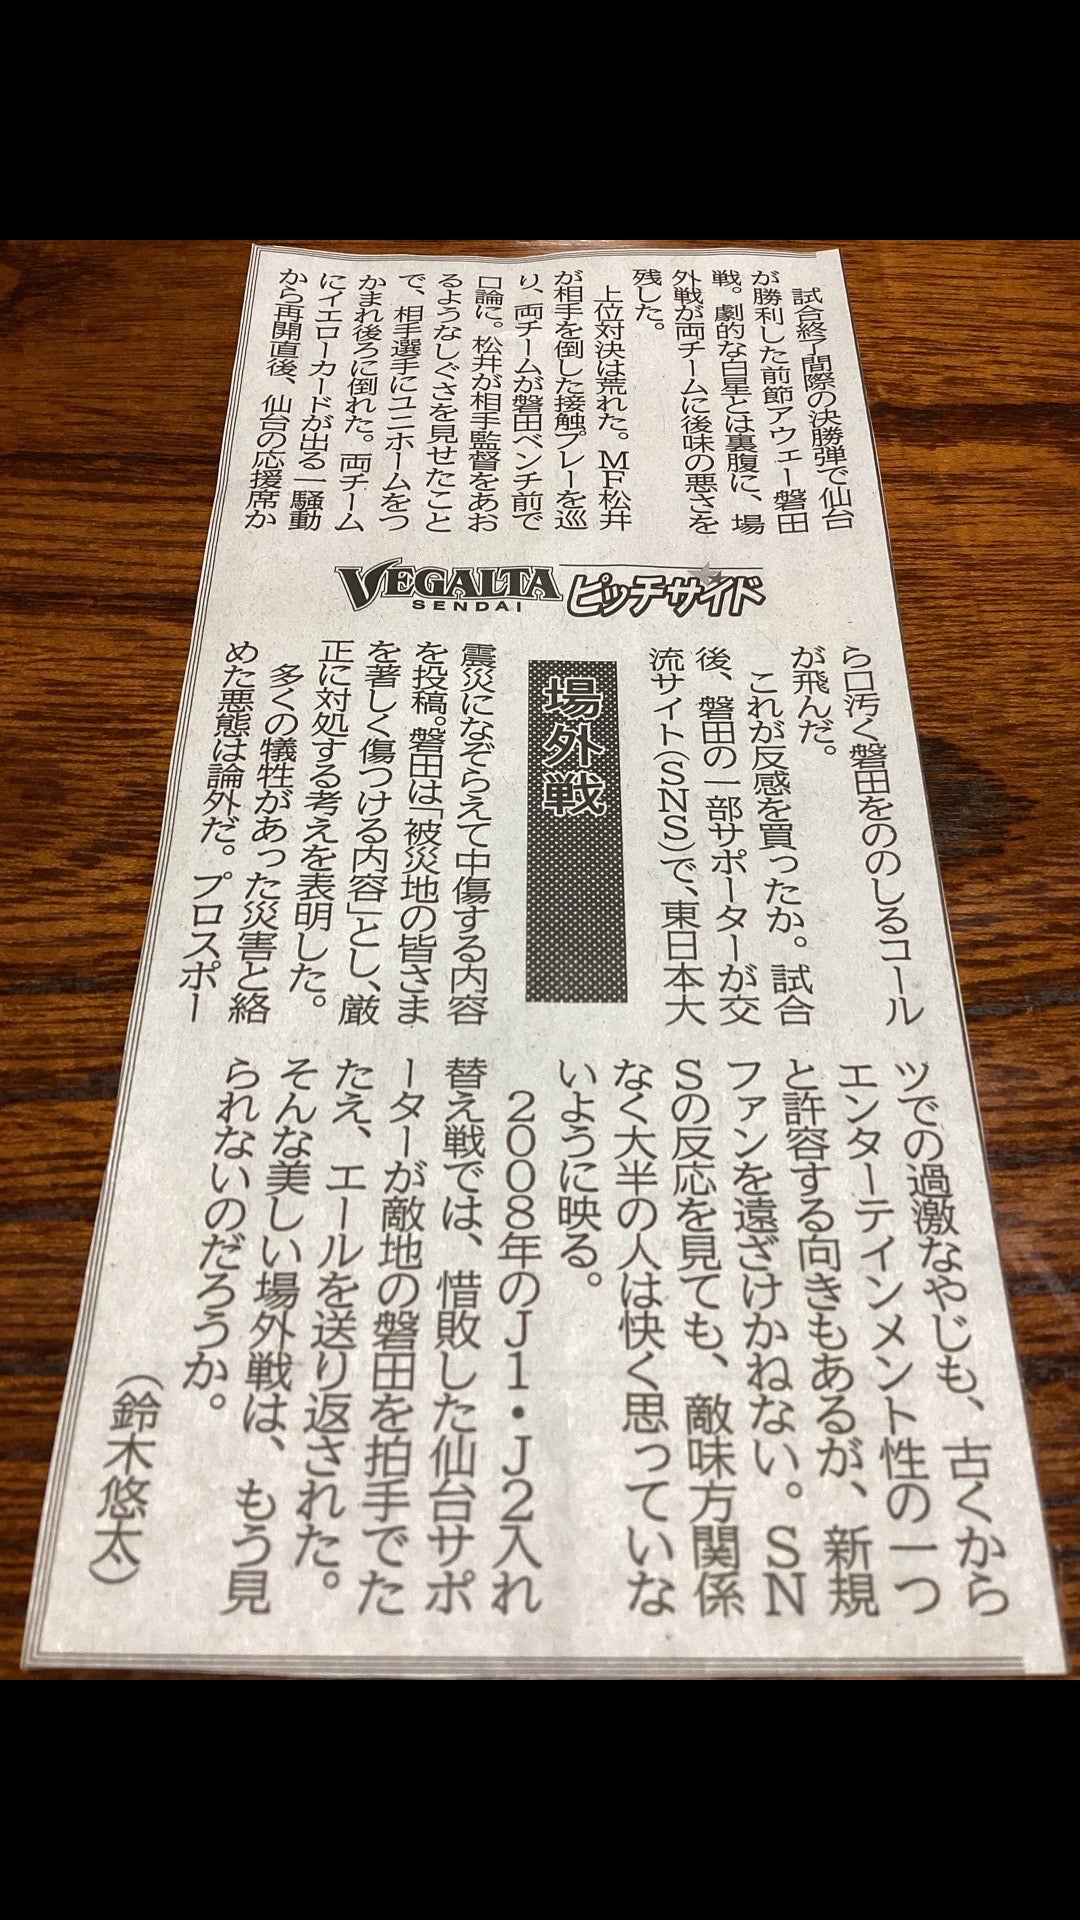 試合終了間際の決勝弾で仙台
が勝利した前節アウェー磐田
戦。劇的な白星とは裏腹に、場
外戦が両チームに後味の悪さを
残した。
上位対決は荒れた。MF松井
が相手を倒した接触プレーを巡
り、両チームが磐田ベンチ前で
口論に。松井が相手監督をあお
るようなしぐさを見せたこと
で、相手選手にユニホームをつ
かまれ後ろに倒れた。両チーム
にイエローカードが出る一騒動
から再開直後、仙台の応援席か
VEGALTA
SENDAI
ピッチサイド
場外戦
ら口汚く磐田をののしるコール
が飛んだ。
これが反感を買ったか。試合
後、磐田の一部サポーターが交
流サイト(SNS)で、東日本大
震災になぞらえて中傷する内容
を投稿。磐田は「被災地の皆さま
を著しく傷つける内容」とし、厳
正に対処する考えを表明した。
多くの犠牲があった災害と絡
めた悪態は論外だ。プロスポー
ツでの過激なやじも、古くから
エンターテインメント性の一つ
と許容する向きもあるが、新規
ファンを遠ざけかねない。SN
Sの反応を見ても、敵味方関係
なく大半の人は快く思っていな
いように映る。
2008年のJ1・J2入れ
替え戦では、惜敗した仙台サポ
ーターが敵地の磐田を拍手でた
たえ、エールを送り返された。
そんな美しい場外戦は、もう見
られないのだろうか。
(鈴木悠太)